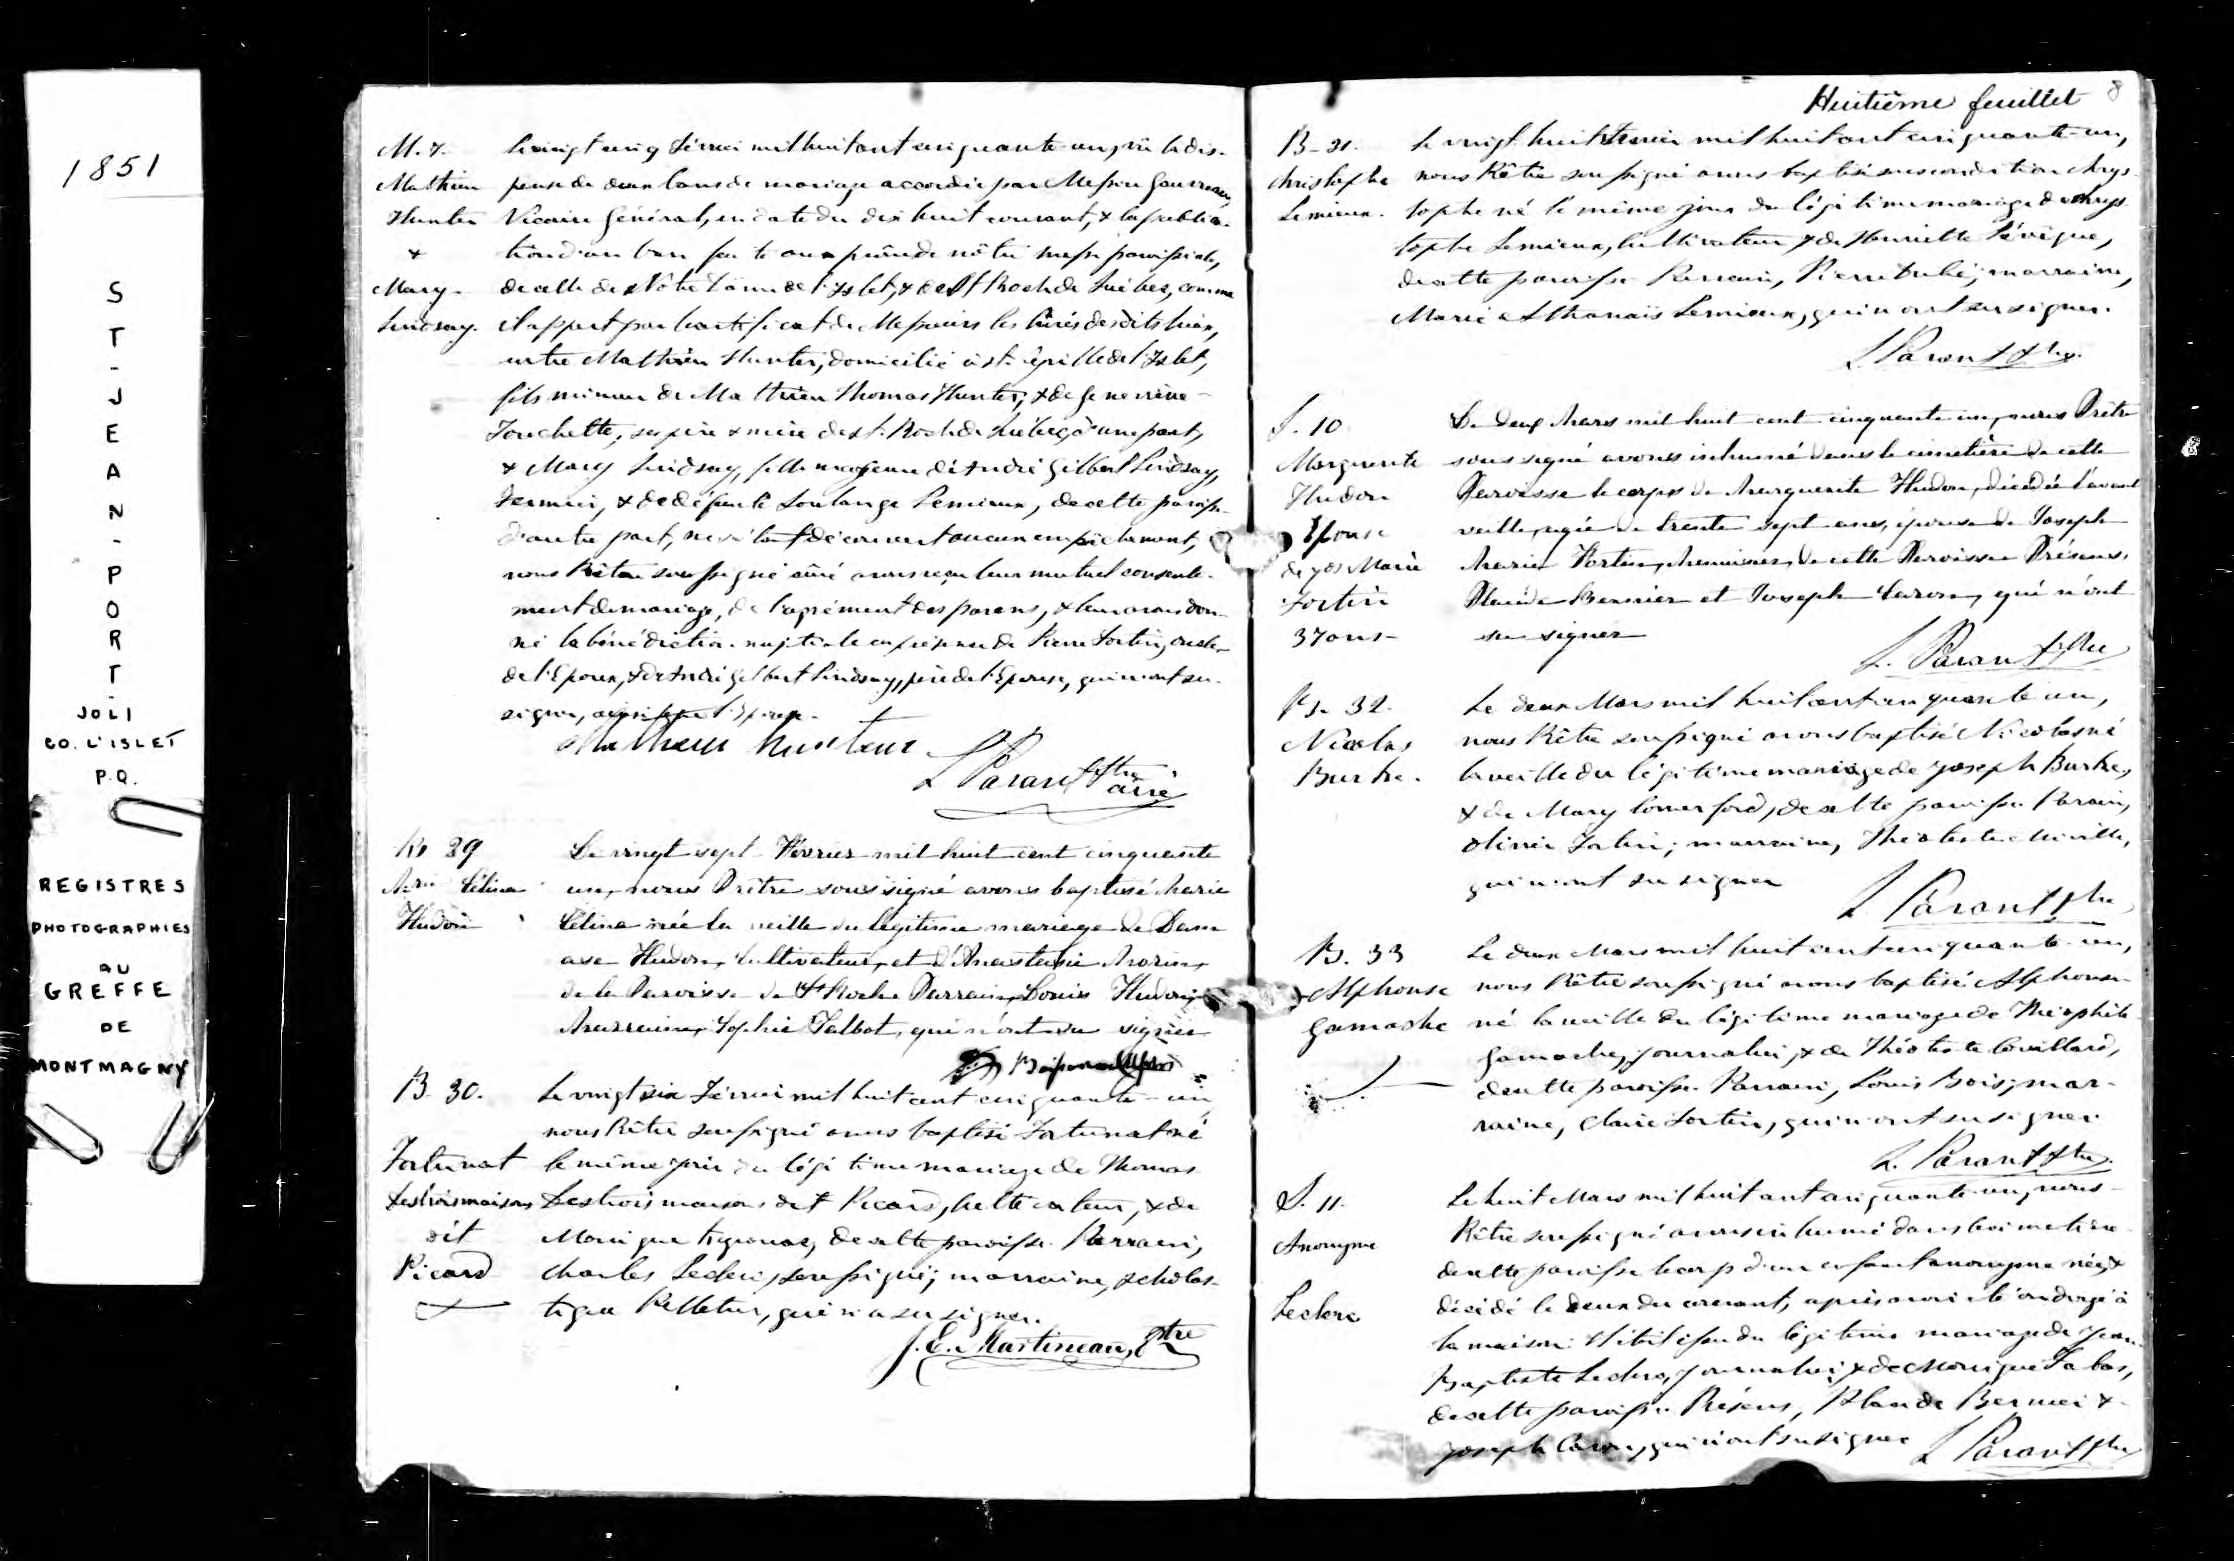 1851
ST-JEAN-PORT-
JOLI
CO. L'ISLET
P.Q.
REGISTRES
PHOTOGRAPHIES
AU
GREFFE
DE
MONTMAGNY
M. 7.
Mathieu
Hunter
&
Mary
Lindsay.
Le vingt cinq Février mil huit cent cinquante-un, vû la dis-
pense de deux bans de mariage accordée par Messire
Vicaire Général, en date du dix huit courant, & la publica-
tion d'un ban faite au prône de nôtre messe paroissiale,
de celle de Nôtre Dame de l'Islet, & de St Roch de Québec, comme
il appert par le certificat de Messieurs les Curés desdits lieux,
entre Mathieu Hunter, domicilié à St. Cyrille de l'Islet,
fils mineur de Mathieu Thomas Hunter, & de Geneviève
Touchette, ses père & mère de St. Roch de Québec, d'une part,
& Mary Lindsay, fille majeure d'André Gilbert Lindsay,
Fermier, & de défunte Soulange Lemieux, de cette paroisse
d'autre part, ne s'étant découvert aucun empêchement,
nous Prêtre soussigné curé avons reçu leur mutuel consente-
ment de mariage, de l'agrément des parens, & leur avons don-
né la bénédiction nuptiale en présence de Pierre Fortin, oncle
de l'Epoux, & d'André Gilbert Lindsay, père de l'Epouse, qui n'ont su
signer, ainsi que l'Epouse.
Mathieu hunteur
L Parant Ptre
curé
B 29
Mrie Célina
Hudon
Le vingt sept Février mil huit cent cinquante
un, nous Prêtre soussigné avons baptisé Marie
Célina née la veille du légitime mariage de Dam
ase Hudon, Cultivateur, et d'Anastasie Morin,
de la Paroisse de St Roch. Parrain, Louis Hudon,
Marraine, Sophie Talbot, qui n'ont su signer
B. 30.
Fortunat
Lestroismaisons
dit
Picard
Le vingt six Février mil huit cent cinquante-un
nous Prêtre soussigné avons baptisé Fortunat né
le même jour du légitime mariage de Thomas
Lestrois maisons dit Picard, cultivateur, & de
Monique, de cette paroisse. Parrain,
Charles Leclerc, soussigné; marraine, Scholas-
tique Pelletier, qui n'a su signer.
J. E. Martineau, Ptre
Huitième feuillet 8
B-31.
Christophe
Lemieux.
Le vingt-huit Février mil huit cent cinquante-un,
nous Prêtre soussigné avons baptisé sous condition Chrys-
tophe né le même jour du légitime mariage de Chrys-
tophe Lemieux, Cultivateur & de Henriette Lévêque,
de cette paroisse. Parrain, Pierre Dubé; marraine,
Marie Athanaïs Lemieux, qui n'ont su signer.
L Parant Ptre.
S. 10
Marguerite
Hudon
Epouse
de Jos Marie
Fortin
37 ans
Le deux Mars mil huit cent cinquante un, nous Prêtre
soussigné avons inhumé dans le cimetière de cette
Paroisse le corps de Marguerite Hudon, décédée l'avant
veille, agée de trente sept ans, épouse de Joseph
Marie Fortin, Menuisier, de cette Paroisse. Présens,
Placide Bernier et Joseph Caron, qui n'ont
su signer
L. Parant Ptre
B. 32.
Nicolas
Burke.
Le deux Mars mil huit cent cinquante un,
nous Prêtre soussigné avons baptisé Nicolas né
la veille du légitime mariage de Joseph Burke,
& de Mary Comerford, de cette paroisse. Parrain,
Olivier Fortin; marraine, Théotiste Miville,
qui n'ont su signer
L. Parant Ptre
B. 33
Alphonse
Gamache
Le deux Mars mil huit cent cinquante-un,
nous Prêtre soussigné avons baptisé Alphonse
né la veille du légitime mariage de Théophile
Gamache, journalier, & de Théotiste Couillard,
de cette paroisse. Parrain, Louis Bois; mar-
raine, Claire Fortin, qui n'ont su signer.
L. Parant Ptre.
S. 11.
Anonyme
Leclerc
Le huit Mars mil huit cent cinquante-un, nous
Prêtre soussigné avons inhumé dans le cimetière
de cette paroisse le corps d'un enfant anonyme né &
décédé le deux du courant, après avoir été ondoyé à
la maison. Il était issu du légitime mariage de Jean
Baptiste Leclerc, journalier & de Monique,
de cette paroisse. Présens, Placide Bernier &
Joseph Caron, qui n'ont su signer L Parant Ptre